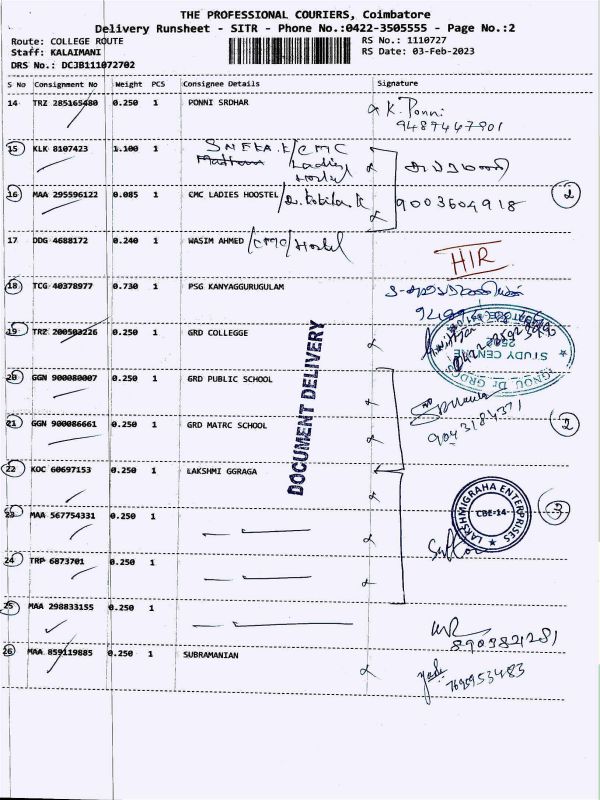 THE PROFESSIONAL COURIERS, Coimbatore
Delivery Runsheet - SITR - Phone No.:0422-3505555 - Page No.:2
Route: COLLEGE ROUTE
Staff: KALAIMANI
DRS No.: DCJB111072702
RS No.: 1110727
RS Date: 03-Feb-2023
S No Consignment No Weight PCS Consignee Details Signature
14 TRZ 285165480 0.250 1 PONNI SRDHAR
K. Ponni
9487447901
15 KLK 8107423 1.100 1 SNEKA.K/CMC
Ladies
Hostel
16 MAA 295596122 0.085 1 CMC LADIES HOOSTEL
9003604918
2
17 DDG 4688172 0.240 1 WASIM AHMED /CMC/Hostel
HIR
18 TCG 40378977 0.730 1 PSG KANYAGGURUGULAM
19 TRZ 200503226 0.250 1 GRD COLLEGGE
STUDY CENTRE
2502
DOCUMENT DELIVERY
20 GGN 900080007 0.250 1 GRD PUBLIC SCHOOL
9043184371
21 GGN 900086661 0.250 1 GRD MATRC SCHOOL
2
22 KOC 60697153 0.250 1 LAKSHMI GGRAGA
LAKSHMIGRAHA ENTERPRISES
CBE-14
23 MAA 567754331 0.250 1
24 TRP 6873701 0.250 1
25 MAA 298833155 0.250 1
8903821281
26 MAA 859119885 0.250 1 SUBRAMANIAN